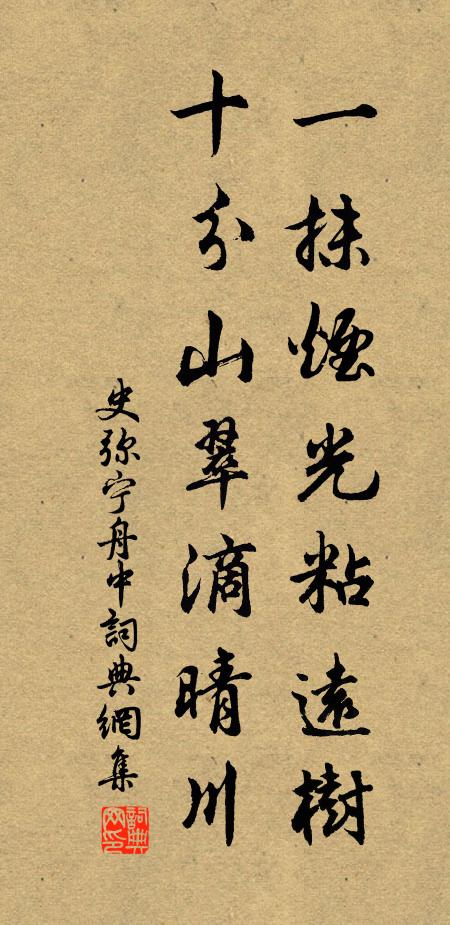 一抹煙光粘遠樹
十分山翠滴晴川
史弥宁舟中詞典網集
詞典网印